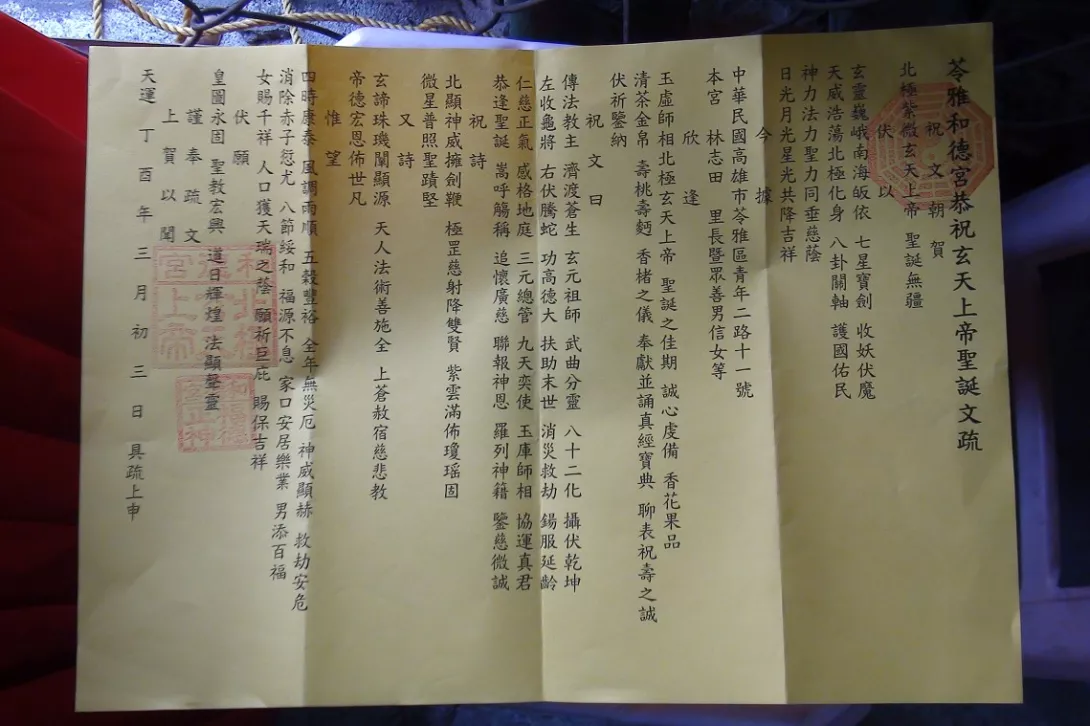 苓雅和德宮恭祝玄天上帝聖誕文疏
祝文朝賀
北極紫微玄天上帝 聖誕無疆
伏以
玄靈巍峨南海皈依 七星寶劍 收妖伏魔
天威浩蕩北極化身 八卦關軸 護國佑民
神力法力聖力同垂慈蔭
日光月光星光共降吉祥
今據
中華民國高雄市苓雅區青年二路十一號
本宮 林志田 里長暨眾善男信女等
欣逢
玉虛師相北極玄天上帝 聖誕之佳期 誠心虔備 香花果品
清茶金帛 壽桃壽麵 香楮之儀 奉獻並誦真經寶典 聊表祝壽之誠
伏祈鑒納
祝文曰
傳法教主 濟渡蒼生 玄元祖師 武曲分靈 八十二化 攝伏乾坤
左收龜將 右伏騰蛇 功高德大 扶助末世 消災救劫 錫服延齡
仁慈正氣 感格地庭 三元總管 九天奕使 玉庫師相 協運真君
恭逢聖誕 嵩呼觴稱 追懷廣慈 聯報神恩 羅列神籍 鑒慈微誠
祝詩
北顯神威擁劍鞭 極罡慈射降雙賢 紫雲滿佈瓊瑤固
微星普照聖蹟堅
又詩
玄諦珠璣闡顯源 天人法術善施全 上蒼赦宿慈悲教
帝德宏恩佈世凡
惟望
四時康泰 風調雨順 五穀豐裕 全年無災厄 神威顯赫 救劫安危
消除赤子愆尤 八節綏和 福源不息 家口安居樂業 男添百福
女賜千祥 人口獲天瑞之蔭 願祈巨庇 賜保吉祥
伏願
皇圖永固 聖教宏興 道日輝煌 法顯聲靈
謹奉疏文
上賀以聞
天運 丁酉年三月初三日 具疏上申